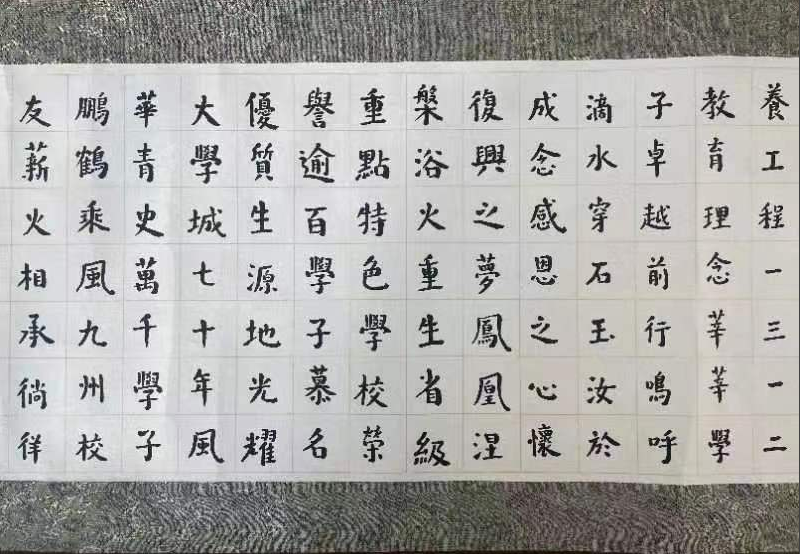 養工程一三一二
教育理念莘莘學
子卓越前行鳴呼
滴水穿石玉汝於
成念感恩之心懷
復興之夢鳳凰涅
槃浴火重生省級
重點特色學校榮
譽逾百學子慕名
優質生源地光耀
大學城七十年風
華青史萬千學子
鵬鶴乘風九州校
友薪火相承徜徉